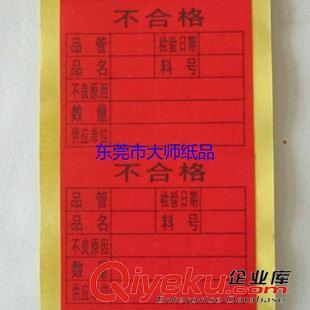 不合格
品管 检验日期
品名 料号
不良原因
数量
供应单位
东莞市大师纸品
不合格
品管 检验日期
品名 料号
不良原因
数量
供应单位
Qiyeku.com 企业库
Enterprise Database